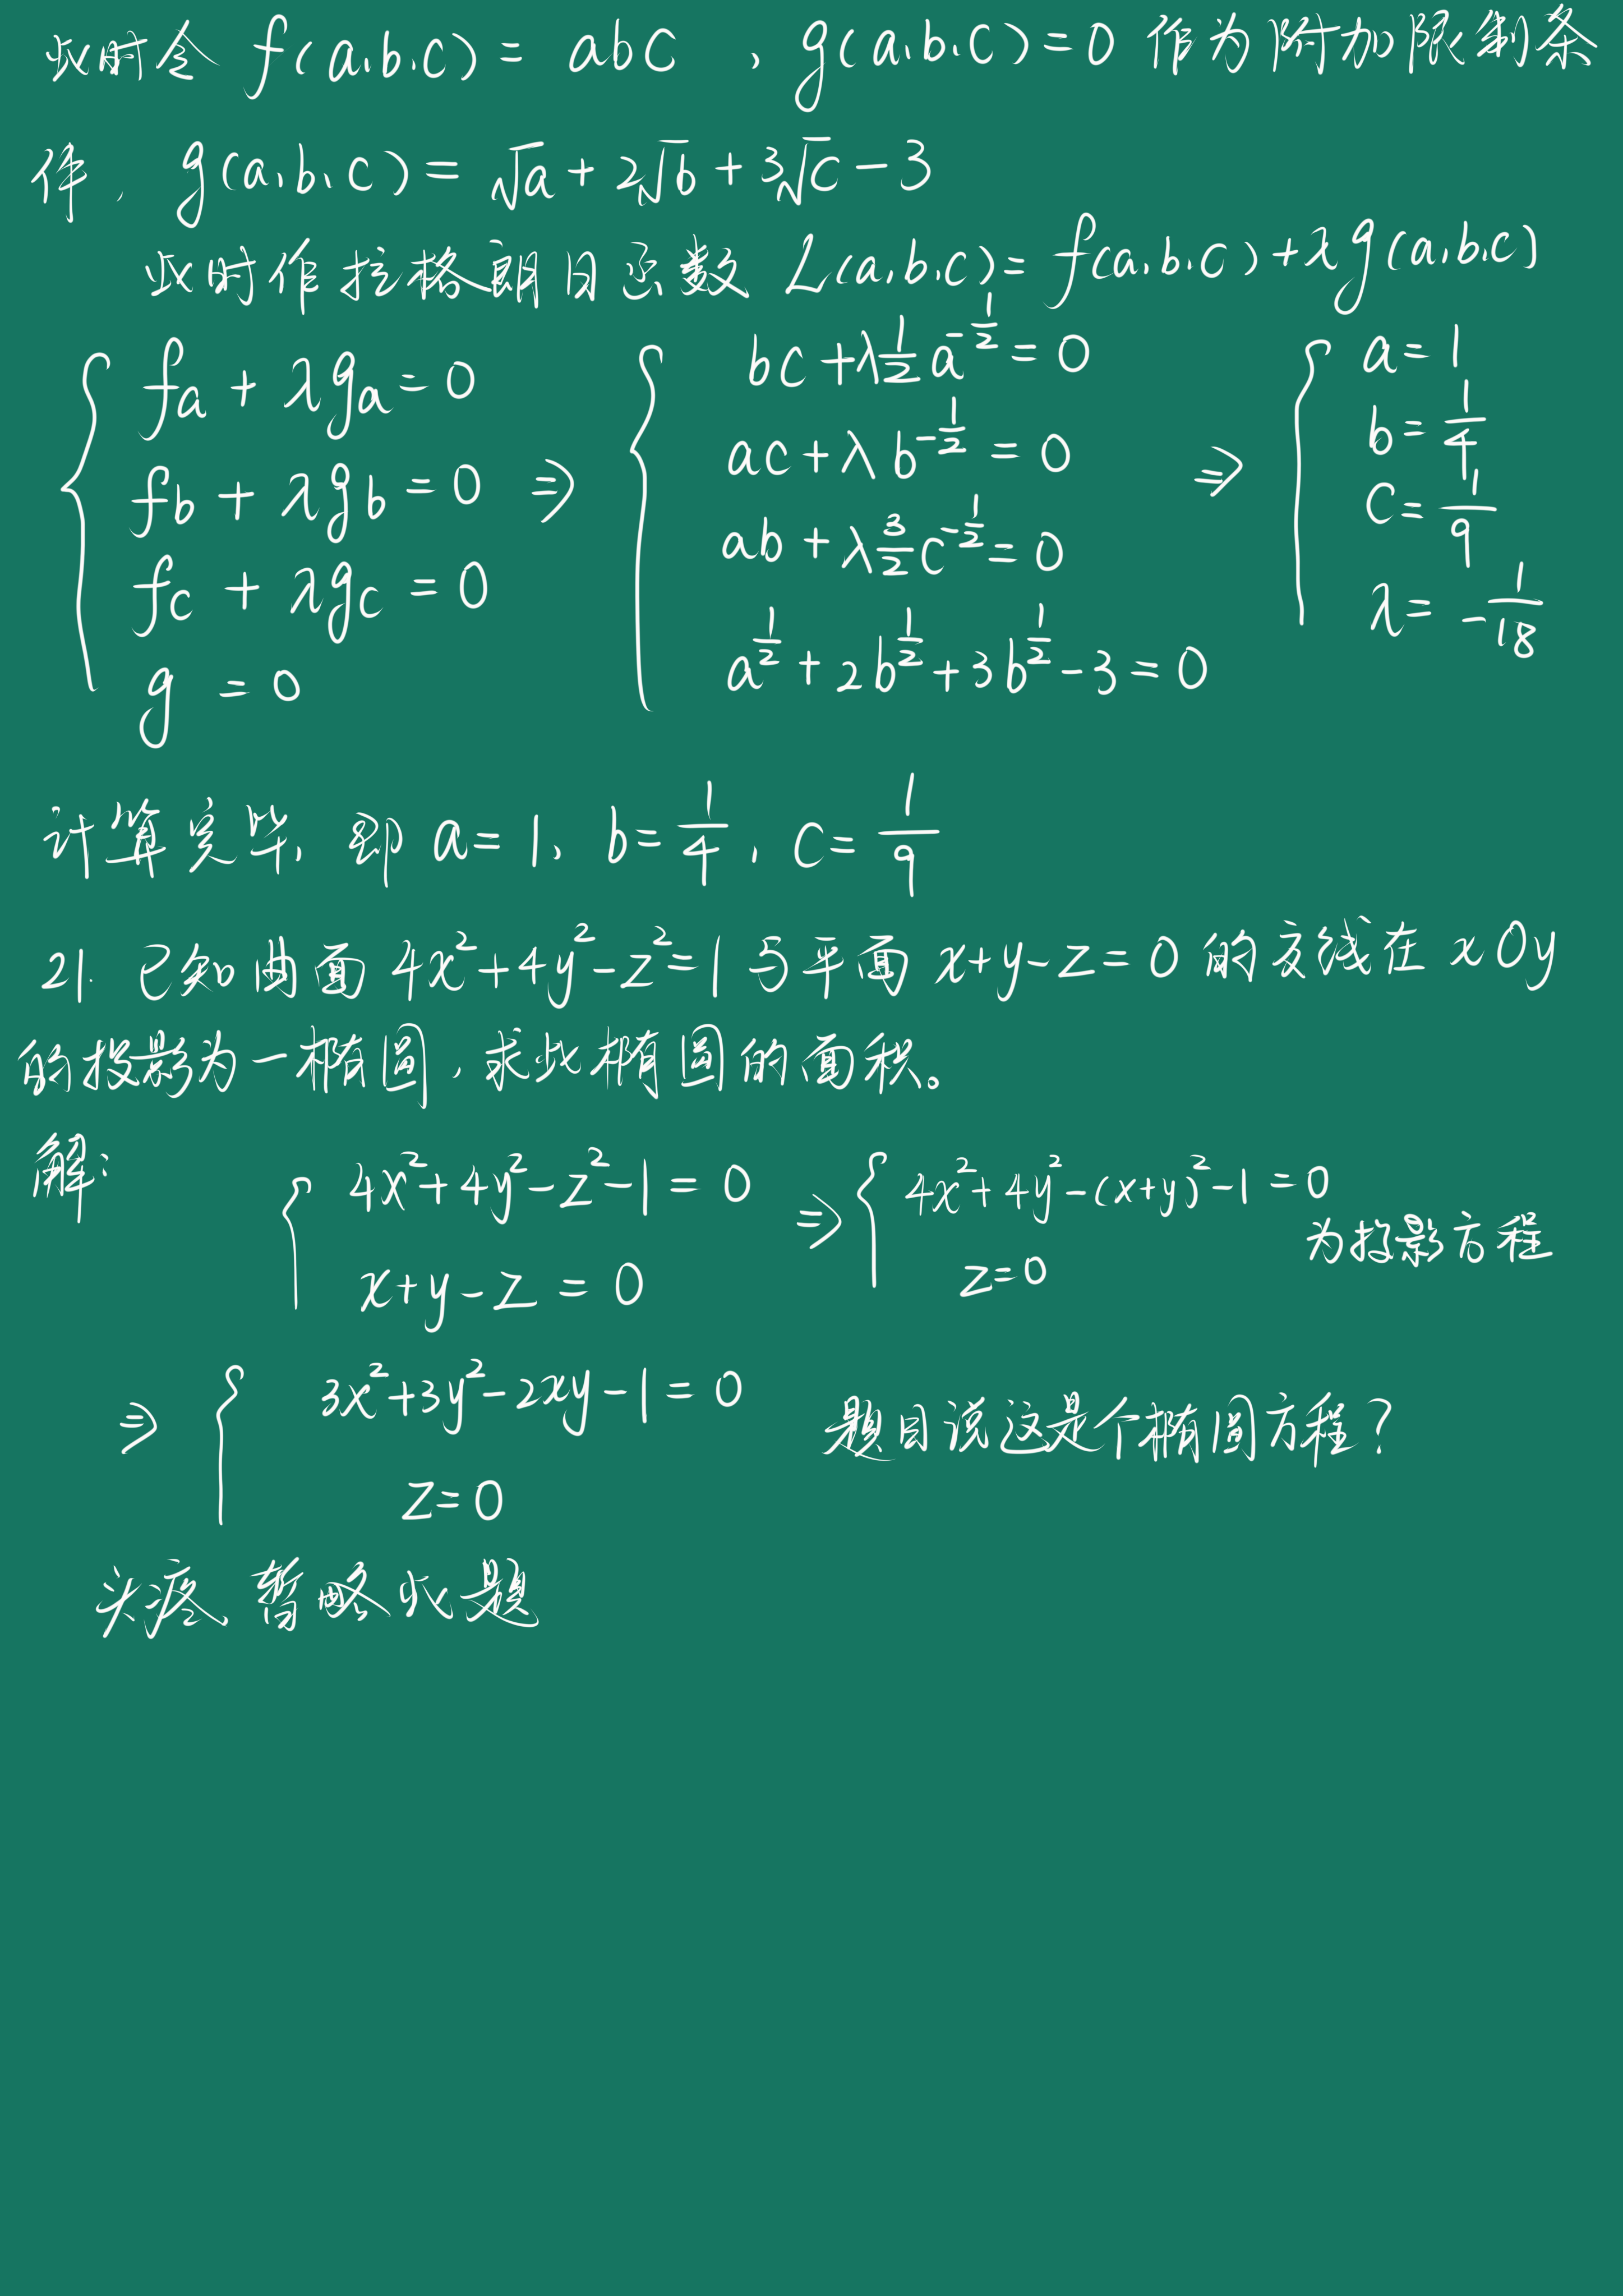 此时令 f(a,b,c) = abc , g(a,b,c) = 0 作为附加限制条
件, g(a,b,c) = √a + 2√b + 3√c - 3
此时作拉格朗日函数 L(a,b,c) = f(a,b,c) + λg(a,b,c)
{ fa + λga = 0
fb + λgb = 0
fc + λgc = 0
g = 0
⇒ { bc + λ1/2 a^(-1/2) = 0
ac + λb^(-1/2) = 0
ab + λ3/2 c^(-1/2) = 0
a^(1/2) + 2b^(1/2) + 3b^(1/2) - 3 = 0
⇒ { a = 1
b = 1/4
c = 1/9
λ = -1/18
计算完毕, 即 a = 1, b = 1/4, c = 1/9
21. 已知曲面 4x²+4y²-z²=1 与平面 x+y-z=0 的交线在 xOy
的投影为一椭圆, 求此椭圆的面积。
解: { 4x²+4y²-z²-1=0
x+y-z=0
⇒ { 4x²+4y²-(x+y)²-1=0
z=0
为投影方程
⇒ { 3x²+3y²-2xy-1=0
z=0
题目说这是个椭圆方程?
头疼 暂略此题